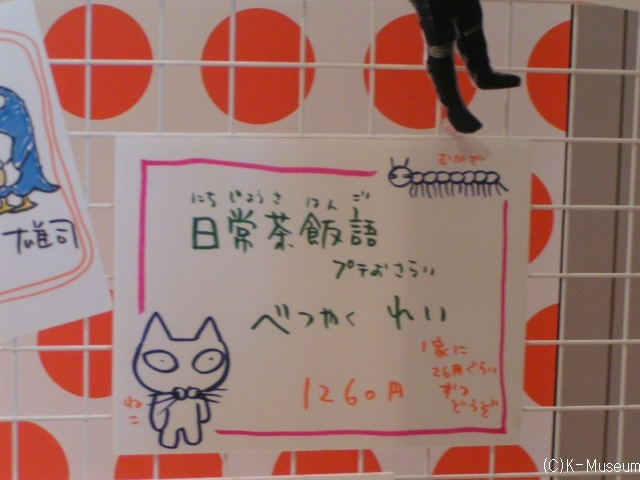 むかで
にちじょうさはんご
日常茶飯語
プチおさらい
べつやく れい
1260円
1家に
26冊ぐらい
ずつ
どうぞ
ねこ
雄司
(C)K-Museum